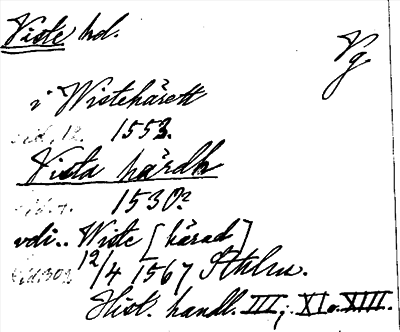 Viste hd.
Vg.
i Wistehärett
sid. 12. 1553.
Vista härdh
1530?
vdi.. Wiste [härad]
12/4 1567 Sthlm.
Hist. handl. III; XI o XIII.